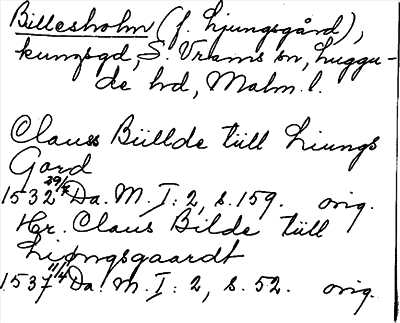 Billesholm (f. Ljungsgård),
kungsgd, S. Vrams sn, Luggu-
de hd, Malm. l.
Clauss Büllde tüll Liungs
Gard
1532 29/8 Da. M. I: 2, s. 159. orig.
Hr. Claus Bilde tüll
Liongsgaardt
1537 11/4 Da. M. I: 2, s. 52. orig.